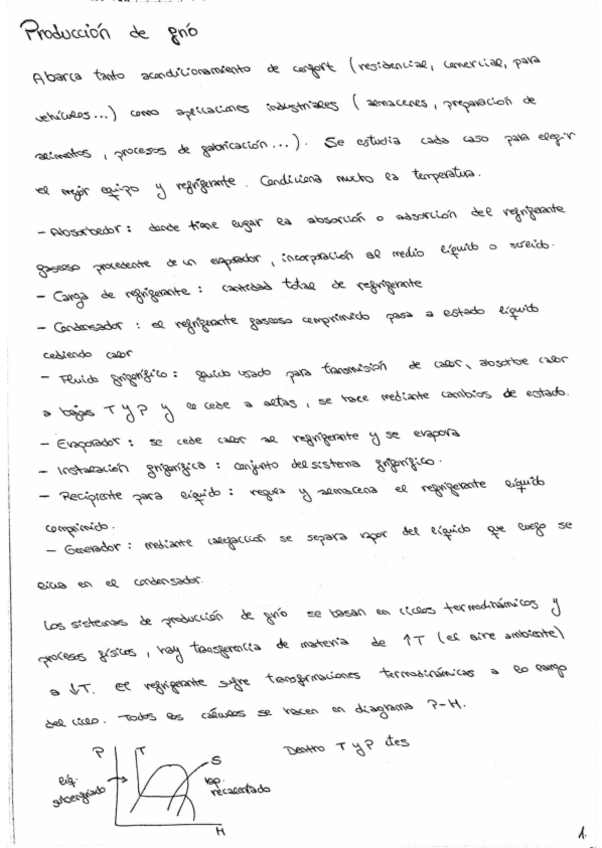 Producción de frío
Abarca tanto acondicionamiento de confort (residencial, comercial, para
vehículos...) como aplicaciones industriales (almacenes, preparación de
alimentos, procesos de fabricación...). Se estudia cada caso para elegir
el mejor equipo y refrigerante. Condiciona mucho la temperatura.
- Absorbedor: donde tiene lugar la absorción o adsorción del refrigerante
gaseoso procedente de un evaporador, incorporación al medio líquido o sólido.
- Carga de refrigerante: cantidad total de refrigerante
- Condensador: el refrigerante gaseoso comprimido pasa a estado líquido
cediendo calor
- Fluido frigorífico: fluido usado para transmisión de calor, absorbe calor
a bajas T y P y lo cede a altas, se hace mediante cambios de estado.
- Evaporador: se cede calor al refrigerante y se evapora
- Instalación frigorífica: conjunto del sistema frigorífico.
- Recipiente para líquido: regula y almacena el refrigerante líquido
comprimido.
- Generador: mediante calefacción se separa vapor del líquido que luego se
licua en el condensador.
Los sistemas de producción de frío se basan en ciclos termodinámicos y
procesos físicos, hay transferencia de materia de ↑T (el aire ambiente)
a ↓T. El refrigerante sufre transformaciones termodinámicas a lo largo
del ciclo. Todos los cálculos se hacen en diagrama P-H.
P T S Dentro T y P ctes
líq. subenfriado
vap. recalentado
H
1.